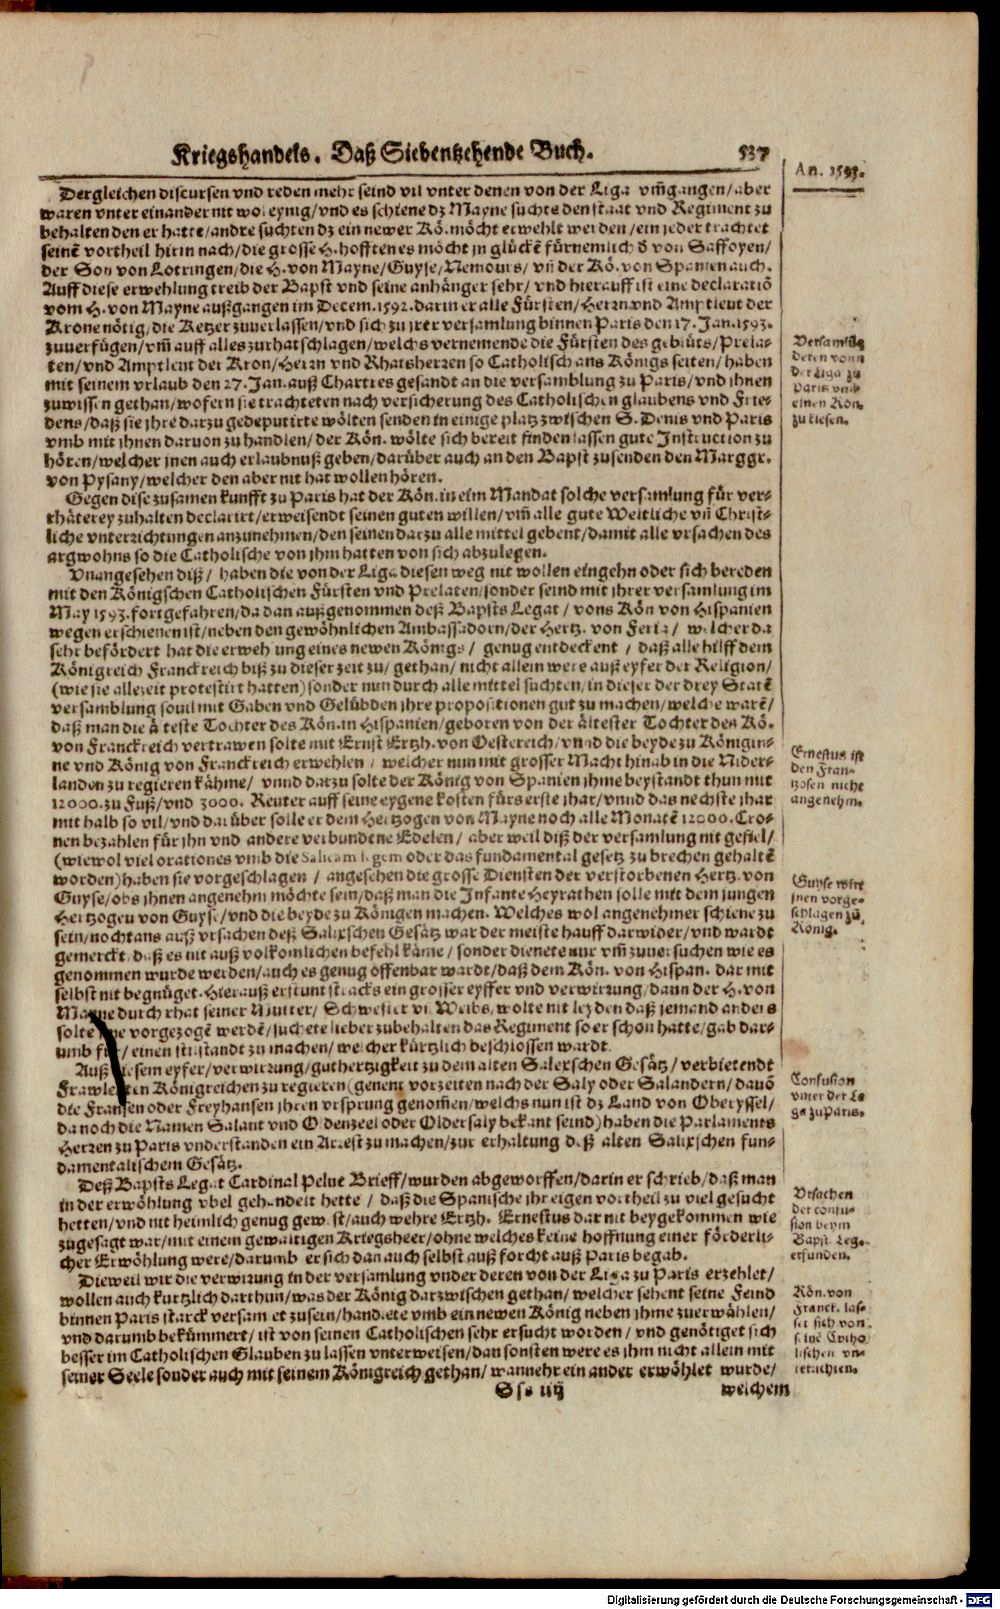 Kriegshandels. Daß Siebentzehende Buch. 537
An. 1593.
Dergleichen discursen vnd reden mehr seind vil vnter denen von der Liga vm̃gangen/aber
waren vnter einander nit wol eynig/vnd es schiene dz Mayne suchte den staat vnd Regiment zu
behalten den er hatte/andre suchten dz ein newer Kö. möcht erwehlt werden/ein jeder trachtet
seinẽ vortheil hirin nach/die grosse H. hofften es möcht jn glückẽ fürnemlich d von Saffoyen/
der Son von Lotringen/die H. von Mayne/Guyse/Nemours/vñ der Kö. von Spanien auch.
Auff diese erwehlung treib der Bapst vnd seine anhänger sehr/vnd hierauff ist eine declaratiõ
vom H. von Mayne außgangen im Decem. 1592. darin er alle Fürsten/Herrn vnd Amptleut der
Krone nötig/die Ketzer zuverlassen/vnd sich zu jrer versamlung binnen Paris den 17. Jan. 1593.
zuverfügen/vm̃ auff alles zurhatschlagen/welchs vernemende die Fürsten des geblüts/Prela-
ten/vnd Amptleut der Kron/Herrn vnd Rhatsherren so Catholisch ans Königs seiten/haben
mit seinem vrlaub den 27. Jan. auß Chartres gesandt an die versamblung zu Paris/vnd ihnen
zuwissen gethan/wofern sie trachteten nach versicherung des Catholischen glaubens vnd Frie-
dens/daß sie jhre darzu gedeputirte wölten senden in einige platz zwischen S. Denis vnd Paris
vmb mit jhnen daruon zu handlen/der Kön. wölte sich bereit finden lassen gute Instruction zu
hören/welcher jnen auch erlaubnuß geben/darüber auch an den Bapst zusenden den Marggr.
von Pysany/welcher den aber nit hat wollen hören.
Versamblũg
deren von
der Liga zu
Paris vmb
einen Kön.
zu kiesen.
Gegen dise zusamenkunfft zu Paris hat der Kön. in eim Mandat solche versamlung für ver-
rhäterey zuhalten declarirt/erweisendt seinen guten willen/vm̃ alle gute Weltliche vñ Christ-
liche vnterrichtungen anzunehmen/den seinen darzu alle mittel gebent/damit alle vrsachen des
argwohns so die Catholische von jhm hatten von sich abzulegen.
Vnangesehen diß/ haben die von der Liga diesen weg nit wollen eingehn oder sich bereden
mit den Königschen Catholischen Fürsten vnd Prelaten/sonder seind mit jhrer versamlung im
May 1593. fortgefahren/da dan außgenommen deß Bapsts Legat / vons Kön von Hispanien
wegen erschienen ist/neben den gewöhnlichen Ambassadorn/der Hertz. von Feria/ welcher da
sehr befördert hat die erwehlung eines newen Königs/ genug entdeckent / daß alle hilff dem
Königreich Franckreich biß zu dieser zeit zu/ gethan/ nicht allein were auß eyfer der Religion/
(wie sie allezeit protestirt hatten) sonder nun durch alle mittel suchten/in dieser der drey Statẽ
versamblung souil mit Gaben vnd Gelübden jhre propositionen gut zu machen/welche warẽ/
daß man die älteste Tochter des Kön. in Hispanien/geboren von der ältester Tochter des Kö.
von Franckreich vertrawen solte mit Ernst Ertzh. von Oestereich/vnnd die beyde zu Königin-
ne vnd König von Franckreich erwehlen / welcher nun mit grosser Macht hinab in die Nider-
landen zu regieren kähme/ vnnd darzu solte der König von Spanien jhme beystandt thun mit
12000. zu Fuß/vnd 3000. Reuter auff seine eygene kosten fürs erste jhar/vnnd das nechste jhar
mit halb so vil/vnd darüber solle er dem Hertzogen von Mayne noch alle Monatẽ 12000. Cro-
nen bezahlen für jhn vnd andere verbundene Edelen / aber weil diß der versamlung nit gefiel/
(wiewol viel orationes vmb die Salicam legem oder das fundamental gesetz zu brechen gehaltẽ
worden) haben sie vorgeschlagen / angesehen die grosse Diensten der verstorbenen Hertz. von
Guyse/obs jhnen angenehm möchte sein/daß man die Infante Heyrathen solle mit dem jungen
Hertzogen von Guyse/vnd die beyde zu Königen machen. Welches wol angenehmer schiene zu
sein/nochtans auß vrsachen deß Salixschen Gesätz war der meiste hauff darwider/vnd wardt
gemerckt/daß es nit auß volkomlichen befehl käme / sonder dienete nur vm̃ zuversuchen wie es
genommen wurde werden/auch es genug offenbar wardt/daß dem Kön. von Hispan. dar mit
selbst nit begnüget. Hierauß erstunt stracks ein grosser eyffer vnd verwirrung/dann der H. von
Mayne durch rhat seiner Mutter/ Schwester vñ Weibs/wolte nit leyden daß jemand anders
solte jme vorgezogẽ werdẽ/suchete lieber zubehalten das Regiment so er schon hatte/gab dar-
umb für/einen stilstandt zu machen/welcher kürtzlich beschlossen wardt.
Ernestus ist
den Fran-
tzosen nicht
angenehm.
Guyse wirt
jnen vorge-
schlagen zũ
König.
Auß diesem eyfer/verwirrung/guthertzigkeit zu dem alten Salexschen Gesätz/verbietendt
Frawleuten Königreichen zu regieren (genent vorzeiten nach der Saly oder Salandern/dauõ
die Fransen oder Freyhansen jhren vrsprung genom̃en/welchs nun ist dz Land von Oberyssel/
da noch die Namen Salant vnd Oldenzeel oder Oldersaly bekant seind) haben die Parlaments
Herren zu Paris vnderstanden ein Arrest zu machen/zur erhaltung deß alten Salixschen fun-
damentalischem Gesätz.
Confusion
vnter der Li-
ga zu Paris.
Deß Bapsts Legat Cardinal Pelue Brieff/wurden abgeworffen/darin er schrieb/daß man
in der erwöhlung vbel gehandelt hette / daß die Spanische jhr eigen vortheil zu viel gesucht
hetten/vnd nit heimlich genug gewest/auch wehre Ertzh. Ernestus dar nit beygekommen wie
zugesagt war/mit einem gewaltigen Kriegsheer/ohne welches keine hoffnung einer förderli-
cher Erwöhlung were/darumb er sich dan auch selbst auß forcht auß Paris begab.
Vrsachen
der confu-
sion beym
Bapst. Leg.
erfunden.
Dieweil wir die verwirrung in der versamlung vnder deren von der Liga zu Paris erzehlet/
wollen auch kurtzlich darthun/was der König darzwischen gethan/welcher sehent seine Feind
binnen Paris starck versamlet zusein/handlete vmb ein newen König neben jhme zuerwöhlen/
vnd darumb bekümmert/ ist von seinen Catholischen sehr ersucht worden / vnd genötiget sich
besser im Catholischen Glauben zu lassen vnterweisen/dan sonsten were es jhm nicht allein mit
seiner Seele sonder auch mit seinem Königreich gethan/wannehr ein ander erwöhlet wurde/
Kön. von
Franck. las-
set sich von
seinẽ Catho-
lischen vn-
terrichten.
Sss iiij welchem
Digitalisierung gefördert durch die Deutsche Forschungsgemeinschaft - DFG